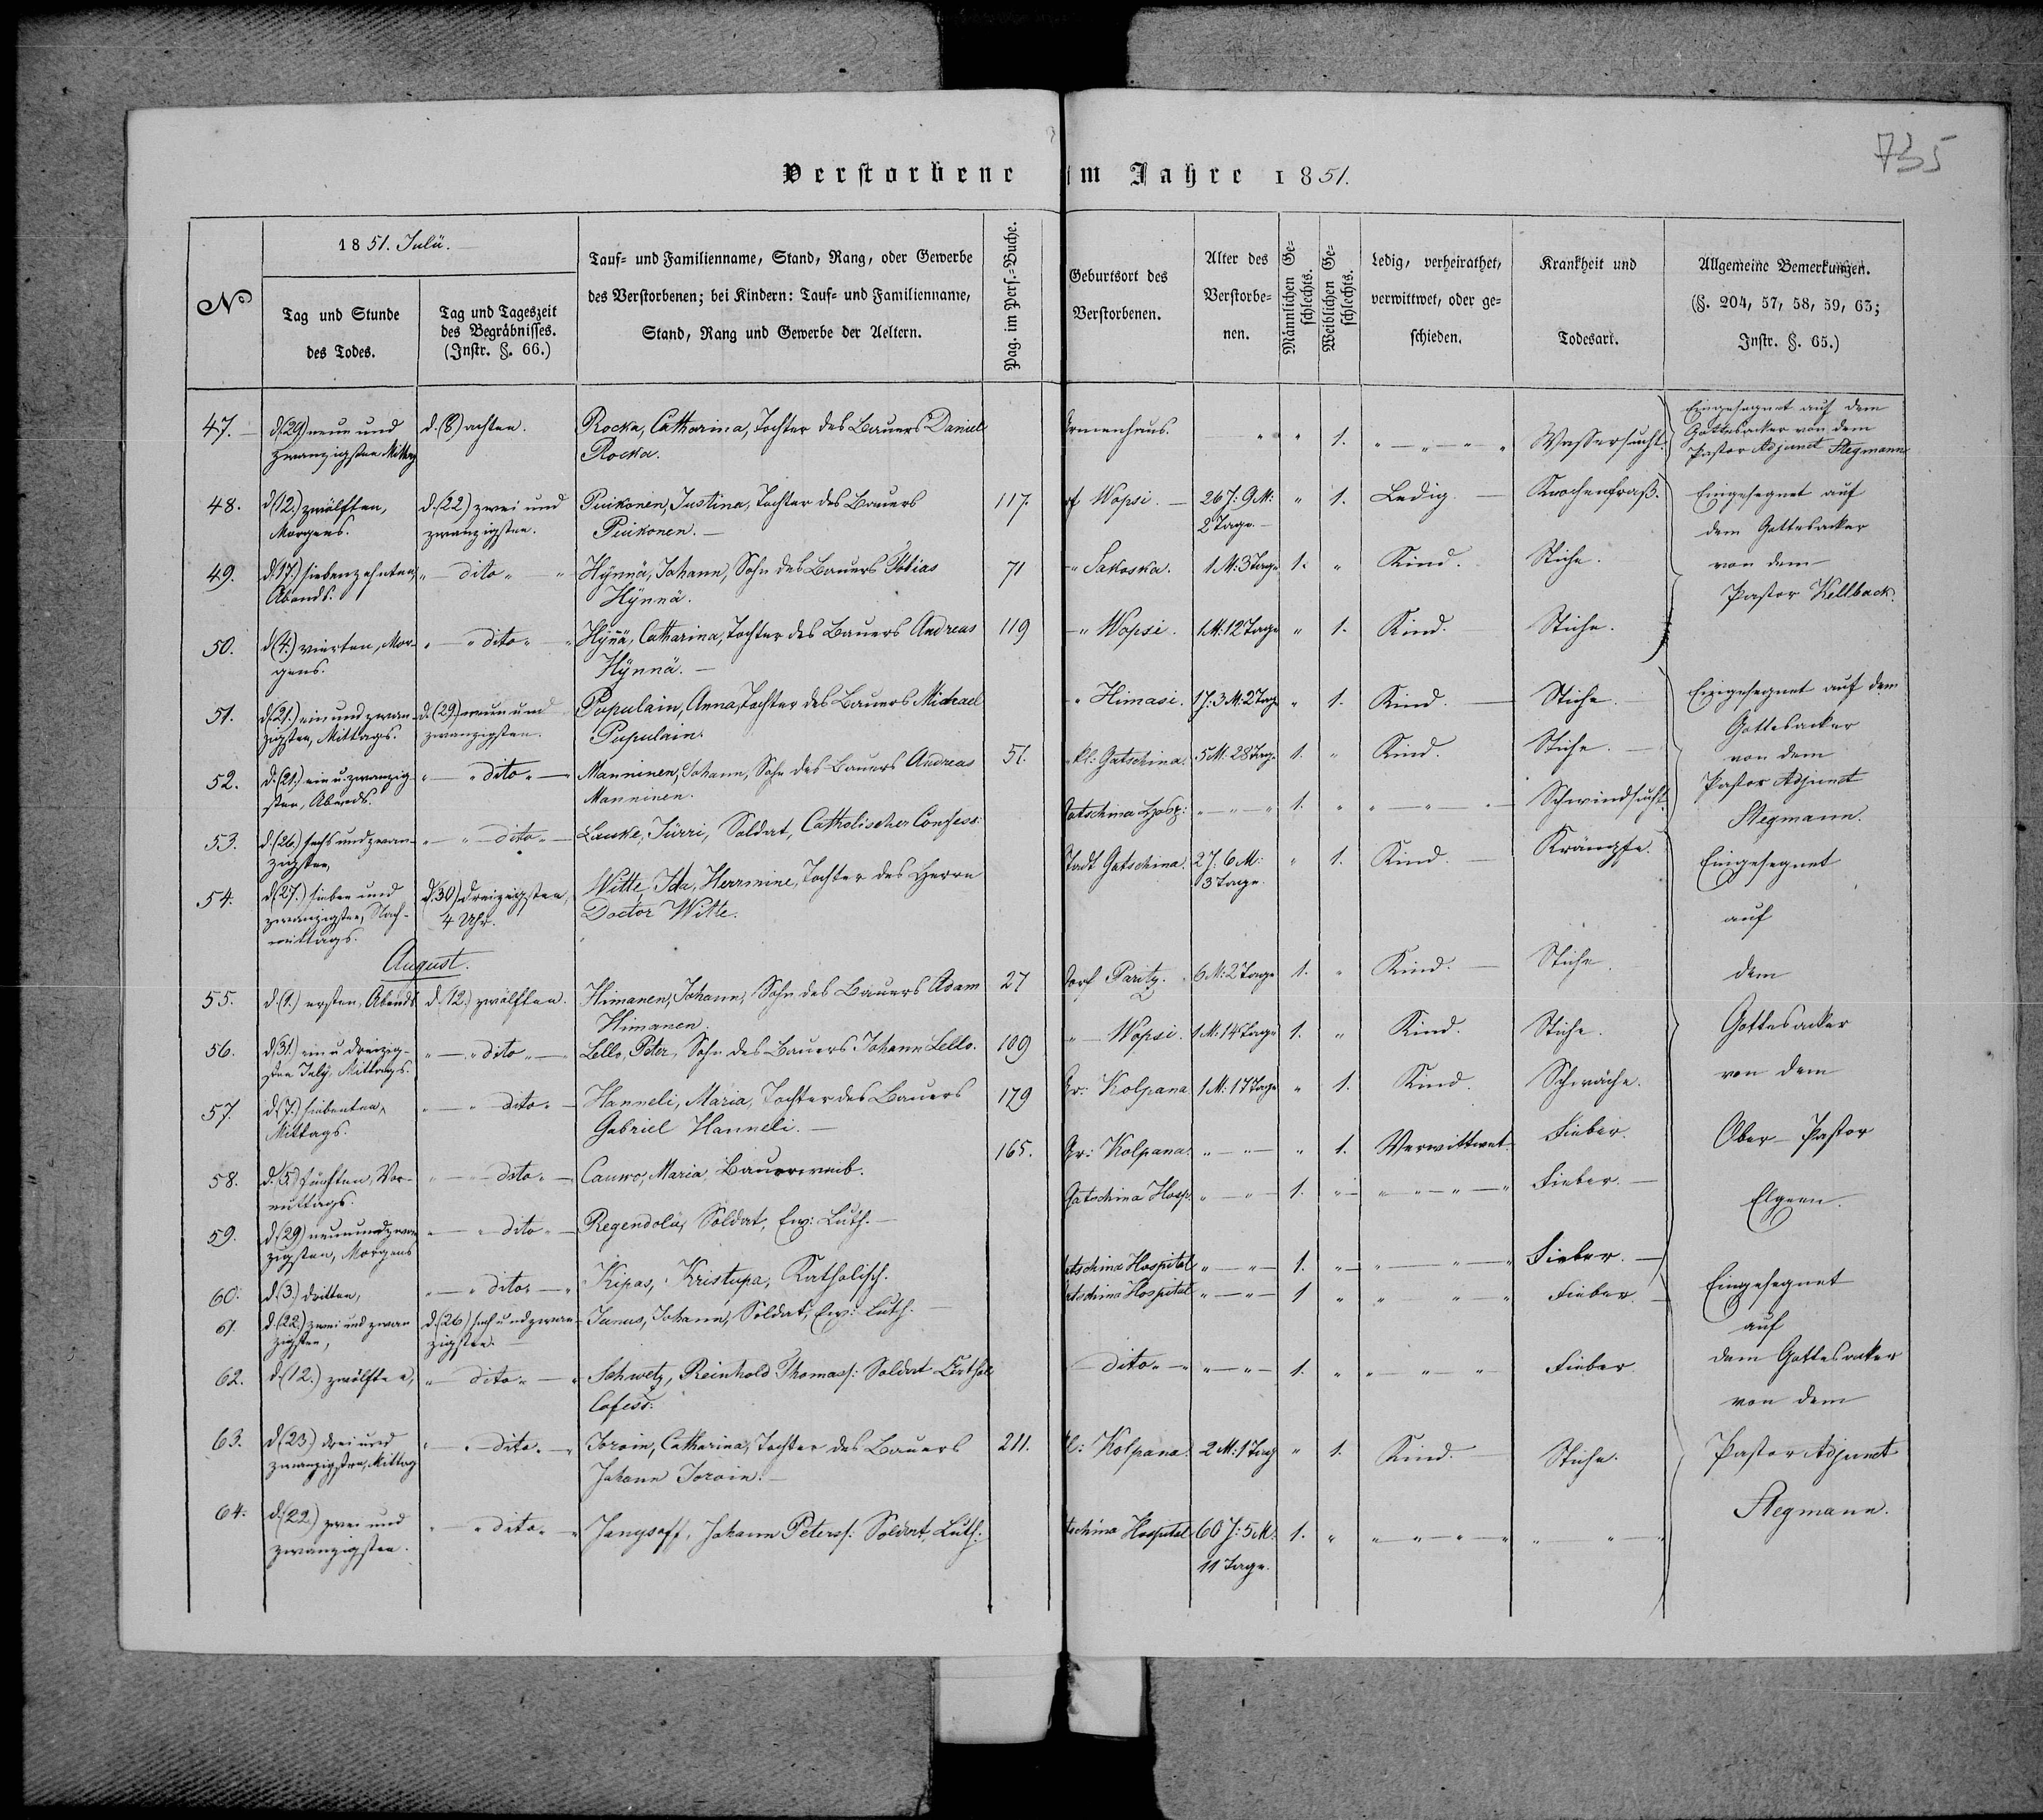 735
Verstorbene im Jahre 1851.
No
1851. Julii.
Tag und Stunde des Todes.
Tag und Tageszeit des Begräbnisses. (Instr. §. 66.)
Tauf- und Familienname, Stand, Rang, oder Gewerbe des Verstorbenen; bei Kindern: Tauf- und Familienname, Stand, Rang und Gewerbe der Aeltern.
Pag. im Pers.-Buche.
Geburtsort des Verstorbenen.
Alter des Verstorbenen.
Männlichen Geschlechts.
Weiblichen Geschlechts.
Ledig, verheirathet, verwittwet, oder geschieden.
Krankheit und Todesart.
Allgemeine Bemerkungen. (§. 204, 57, 58, 59, 63; Instr. §. 65.)
47. d. (29) neun und zwanzigsten Mittag d. (8) achten. Rocka, Catharina, Tochter des Bauers Daniel Rocka. Armenhaus. " " 1. " " " Wassersucht. Eingesegnet auf dem Gottesacker von dem Pastor Adjunct Stegmann
48. d. (12.) zwölften, Morgens. d. (22) zwei und zwanzigsten. Piikonen, Justina, Tochter des Bauers Piikonen. 117. rf Wopsi. 26 J: 9 M: 2 Tage. " 1. Ledig. Knochenfraß. Eingesegnet auf dem Gottesacker
49. d. (17.) siebenzehnten, Abends. " dito " Hÿnnä, Johann, Sohn des Bauers Tobias Hÿnnä. 71 " Sakoska. 1 M: 3 Tage 1. " Kind. Stiche. von dem Pastor Kellback.
50. d. (4.) vierten, Morgens. " dito " Hÿn̄ä, Catharina, Tochter des Bauers Andreas Hÿnnä. 119 " Wopsi. 1 M: 12 Tage " 1. Kind. Stiche.
51. d. (21.) ein und zwanzigsten, Mittags. d. (29.) neun und zwanzigsten. Pupulain, Anna, Tochter des Bauers Michael Pupulain. " Himasi. 1 J: 3 M: 2 Tag " 1. Kind. Stiche. Eingesegnet auf dem Gottesacker
52. d. (21.) ein u. zwanzigsten, Abends. " dito " Manninen, Johann, Sohn des Bauers Andreas Manninen. 51. " kl: Gatschina. 5 M. 28 Tage 1. " Kind. Stiche. von dem Pastor Adjunct
53. d. (26.) sechs und zwanzigsten, " dito " Lauke, Jürri, Soldat, Catholischer Confess: Gatschina Hosp: " " 1. " " " " Schwindsucht Stegmann.
54. d. (27.) sieben und zwanzigsten, Nachmittags. d. (30.) dreizigsten, 4 Uhr. Witte, Ida, Herrmine, Tochter des Herrn Doctor Witte. Stadt Gatschina. 2 J: 6 M: 3 Tage. " 1. Kind. Krämpfe. Eingesegnet auf
August.
55. d. (1.) ersten, Abends d. (12.) zwölften. Himanen, Johann, Sohn des Bauers Adam Himanen. 27 Dorf Paritz. 6 M: 2 Tage 1. " Kind. Stiche. dem
56. d. (31.) ein u. dreizigsten July, Mittags. " dito " Lello, Peter, Sohn des Bauers Johann Lello. 109 " Wopsi. 1 M. 14 Tage 1. " Kind. Stiche. Gottesacker
57. d. (7.) siebenten, Mittags. " dito " Hanneli, Maria, Tochter des Bauers Gabriel Hanneli. 179 Gr: Kolpana 1 M: 17 Tage " 1. Kind. Schwäche. von dem
58. d. (5.) fünften, Vormittags. " dito " Cauwo, Maria, Bauerweib. 165. Gr: Kolpana. " " " 1. Verwittwet. Fieber. Ober-Pastor
59. d. (29) neun und zwanzigsten, Morgens " dito " Regendolu, Soldat, Ew: Luth. Gatschina Hosp. " " 1. " " " " Fieber. Elgeen.
60. d. (3.) dritten, " dito " Kipas, Kristupa, Katholisch. atschina Hospital " " 1. " " " " Fieber.
61. d. (22.) zwei und zwanzigsten, d. (26) sech und zwanzigsten. Junus, Johann, Soldat, Ew: Luth. atschina Hospital " " 1 " " " " Fieber. Eingesegnet auf
62. d. (12.) zwölften, " dito " Schwetz, Reinhold Thomass: Soldat Cathol: Cofess: dito " " 1. " " " " Fieber. dem Gottesacker von dem
63. d. (23) drei und zwanzigsten, Mittag " dito " Toroin, Catharina, Tochter des Bauers Johann Toroin. 211. kl: Kolpana. 2 M: 1 Tag " 1. Kind. Stiche. Pastor Adjunct
64. d. (22.) zwei und zwanzigsten. " dito " Jangsoff, Johann Peterss: Soldat, Luth. tschina Hospital 60 J: 5 M. 11 Tage. 1. " " " " Stegmann.